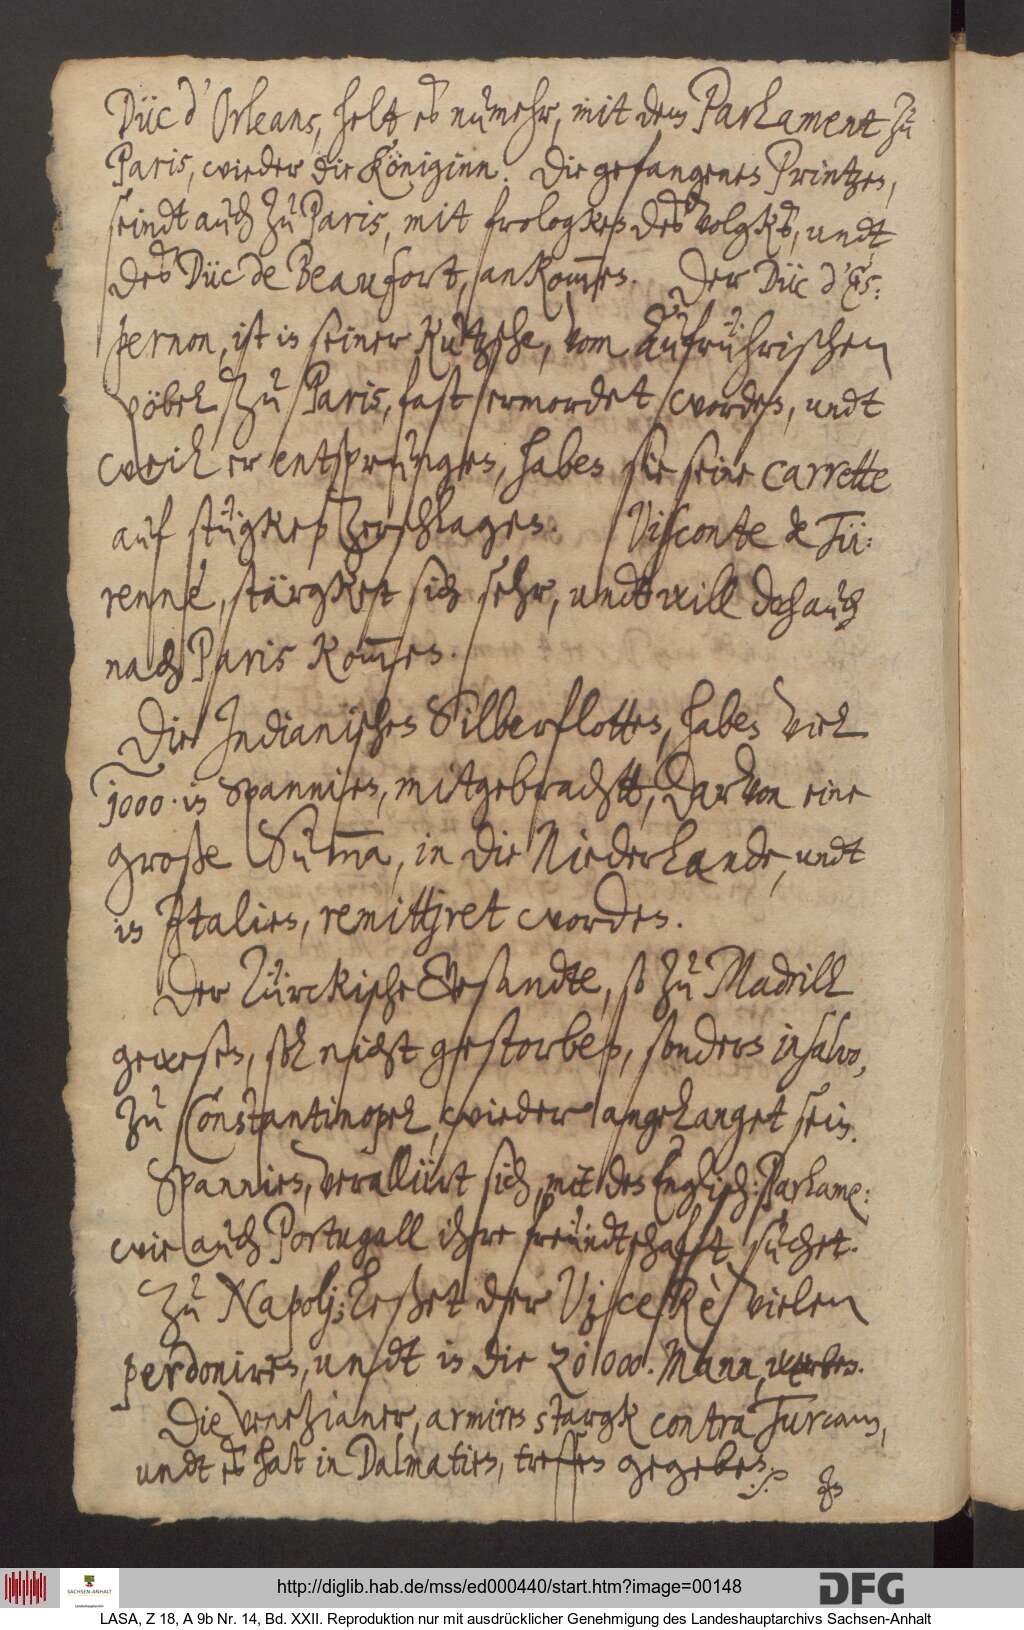 Düc d'Orleans, helt es numehr, mit dem Parlament zu
Paris, wieder die Königinn. Die gefangenen Printzen,
seindt auch zu Paris, mit frologken des volgks, undt
des Düc de Beaufort, ankommen. Der Düc d'Es:
pernon, ist in seiner Kutzsche, vom aufrührischen
pöbel zu Paris, fast ermordet worden, undt
weil er entsprungen, haben sie seine carrette
auf stügken zerschlagen. Visconte de Tü:
renne, stärgket sich sehr, undt will doch auch
nach Paris kommen.
Die Indianischen Silberflotten, haben viel
1000 in Spannien, mitgebracht, darvon eine
große Summa, in die Niederlande, undt
in Italien, remittjret worden.
Der Türckische Gesandte, so zu Madrill
gewesen, sol nicht gestorben, sondern in salvo,
zu Constantinopel, wieder angelanget sein.
Spannien, verallijrt sich, mit des Englisch: Parlame:
wie auch Portugall ihre freundtschafft suchet.
Zu Napolj: leßet der Vice Rè vielen
perdoniren, undt in die 20000. Mann, werben.
Die Venezianer, armiren stargk contra Turcam,
undt es hat in Dalmatien, treffen gegeben.
http://diglib.hab.de/mss/ed000440/start.htm?image=00148
SACHSEN-ANHALT
DFG
LASA, Z 18, A 9b Nr. 14, Bd. XXII. Reproduktion nur mit ausdrücklicher Genehmigung des Landeshauptarchivs Sachsen-Anhalt